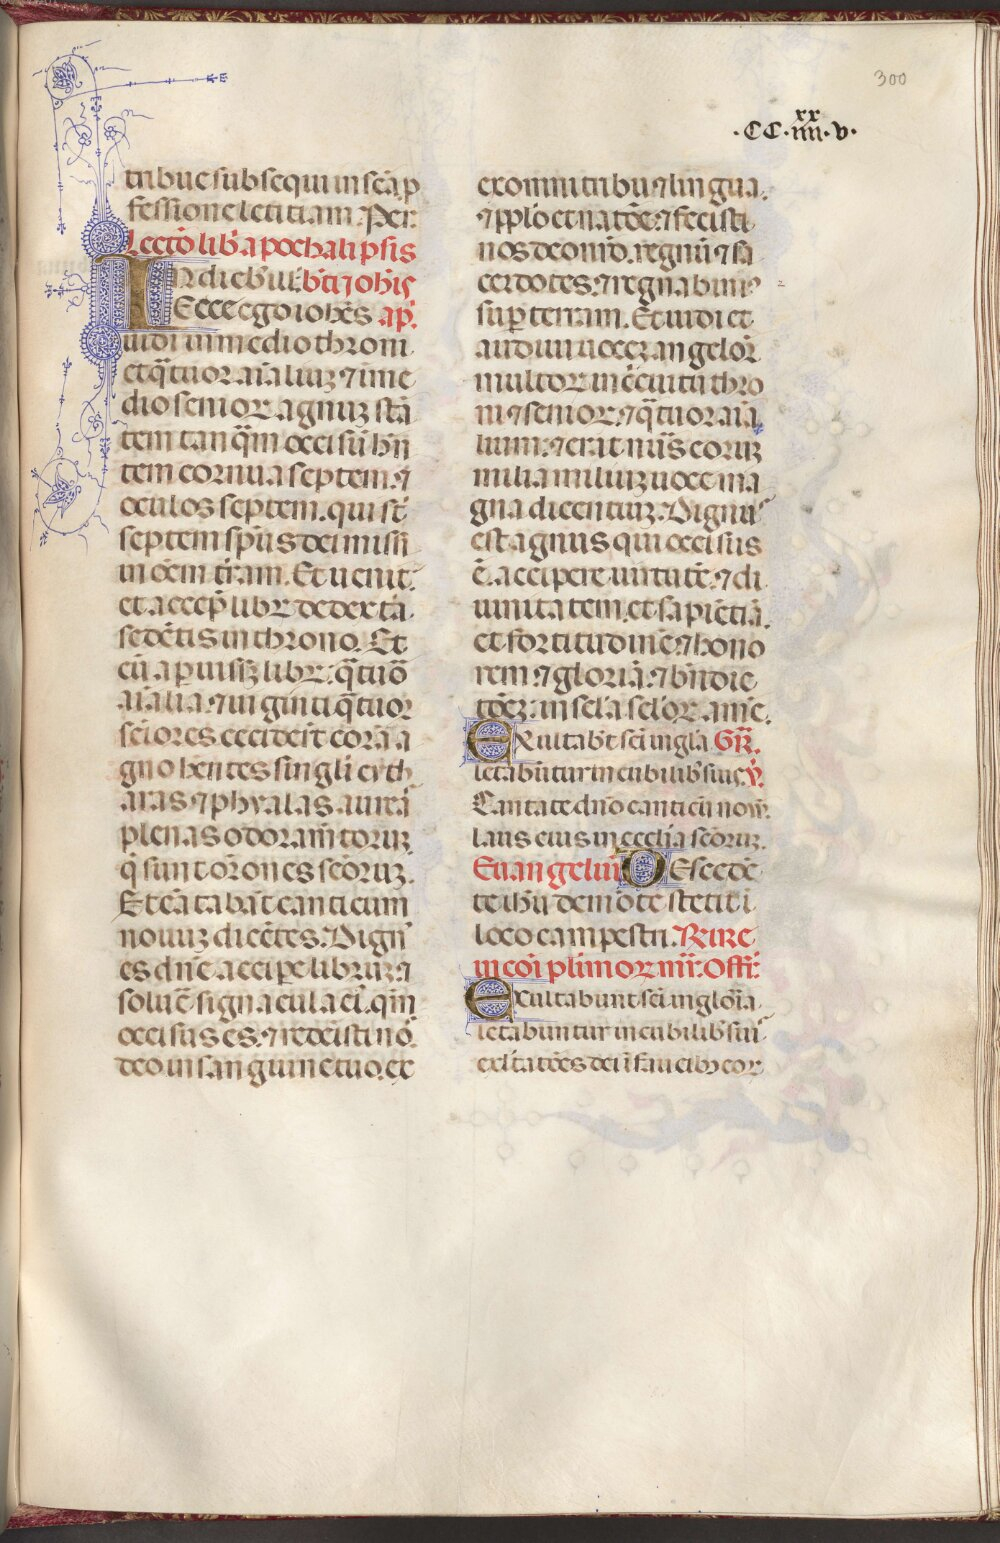 300
·CC·xx iiii·v·
tribue subsequi in sc̄a p
fessione letitiam. Per.
Lectō lib̄ apochalipsis
In dieb̄ ill̄. bt̄i ioh̄is
Ecce ego ioh̄es ap̄.
uidi in medio throni
et q̄tuor aīaliuʒ ⁊ ī me
dio senior agnuʒ stā
tem tan q̄m occisū hn̄
tem cornua septem. ⁊
oculos septem. qui st̄
septem sp̄us dei missi
in oēm tr̄am. Et uenit
et accep̄ libr̄ de dextā
sedētis in throno. Et
cū apuissʒ libr̄. q̄tuō
aīalia. ⁊ uiginti q̄tuor
sēiores cecider̄t corā a
gno hēntes sinḡli cyth
aras ⁊ phyalas aureā
plenas odoram̄toruʒ
q̄ sunt orōnes scōruʒ.
Et cātabāt canticum
nouuʒ dicētes. Dign̄
es dn̄e accipe libruʒ ⁊
soluē signacula eī. qm̄
occisus es. ⁊ redēisti nō
deo in sanguine tuo. ex
ex omni tribu ⁊ lingua.
⁊ pplo et natōe. ⁊ fecisti
nos deo nr̄o. regnū ⁊ sa
cerdotes. ⁊ regnabim̄
sup̄ terram. Et uidi et
audiui uocēʒ angelor̄
multor in c̄cuitu thro
ni ⁊ senior. ⁊ q̄tuor aīa
lium. ⁊ erat nūs eoruʒ
milia miliuʒ uoce ma
gna dicentiuʒ. Dignus
est agnus qui occisus
ē. accipere uirtutē. ⁊ di
uinitatem. et sapiētiā.
et fortitudinē. ⁊ hono
rem. ⁊ gloriā. ⁊ bn̄dic
tōeʒ. in sc̄la sc̄lor. amē.
Exultab̄t sc̄i in gl̄a Gr̄.
letabūtur in cubilib̄ suis. v̄.
Cantate dn̄o canticū nouʒ.
laus eius in ecclīa scōruʒ.
Euangeliū Descēdē
te ih̄u de mōte stetit ī
loco campestri. Rr̄ire
in cōi plimor mr̄. Off̄.
Exultabunt sc̄i in glor̄ia
letabuntur in cubilib̄ suis
exl̄tatōes dei ī faucib̄ eor